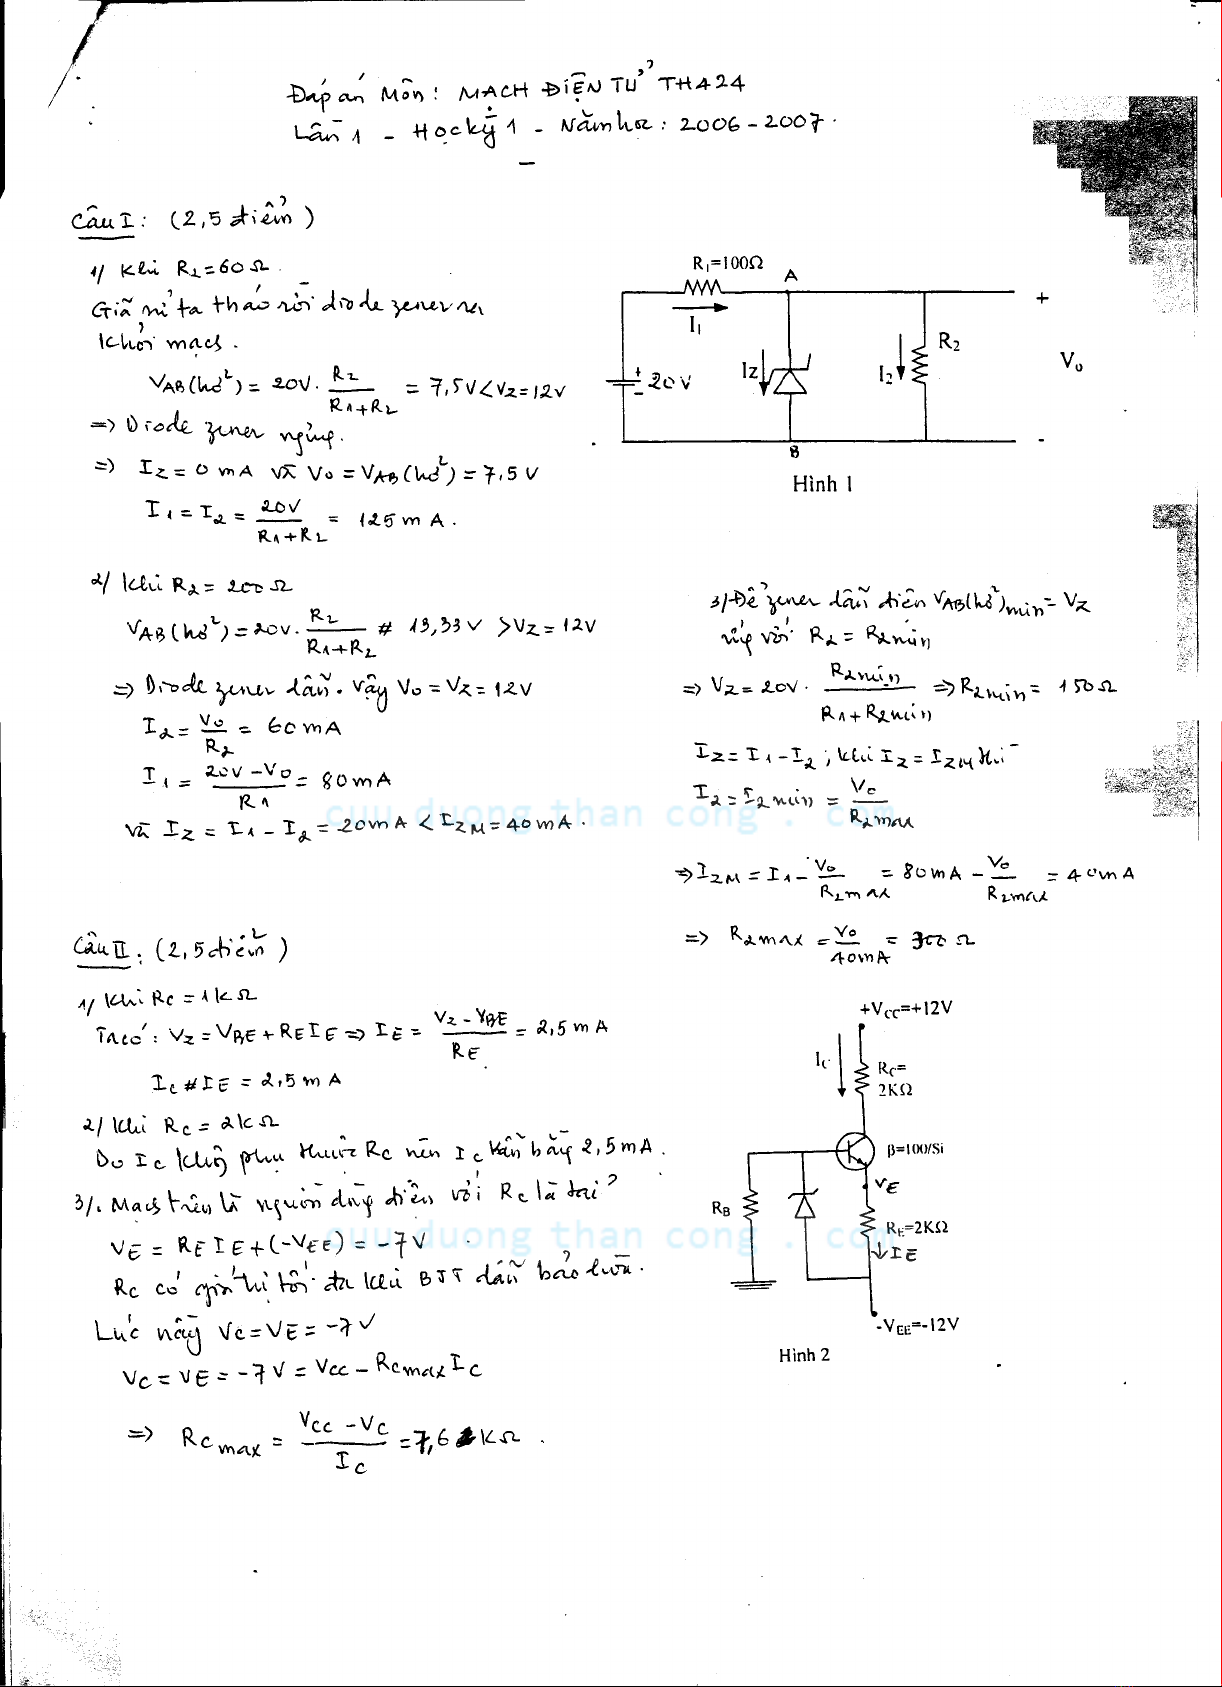 Đáp án Môn: MẠCH ĐIỆN TỬ TH424
Lần 1 - Học kỳ 1 - Năm học: 2006-2007.
Câu I: (2,5 điểm)
1/ Khi R2=60Ω.
Giả sử ta tháo rời diode zener ra
khỏi mạch.
VAB(hở) = 20V. R2/(R1+R2) = 7,5V < VZ=12V
=> Diode zener ngưng.
=> IZ = 0 mA và Vo = VAB(hở) = 7,5 V
I1 = I2 = 20V/(R1+R2) = 125 mA.
2/ Khi R2 = 200 Ω
VAB(hở) = 20V. R2/(R1+R2) # 13,33V > VZ = 12V
=> Diode zener dẫn. Vậy Vo = VZ = 12V
I2 = Vo/R2 = 60mA
I1 = (20V - Vo)/R1 = 80mA
và IZ = I1 - I2 = 20mA < IZM = 40mA.
R1=100Ω
A
I1
+
-
20V
IZ
I2
R2
+
Vo
-
B
Hình 1
3/ Để zener dẫn điện VAB(hở)min = VZ
ứng với R2 = R2min
=> VZ = 20V. R2min/(R1+R2min) => R2min = 150Ω
IZ = I1 - I2 ; khi IZ = IZM thì
I2 = I2min = Vo/R2max
=> IZM = I1 - Vo/R2max = 80mA - Vo/R2max = 40mA
=> R2max = Vo/40mA = 300 Ω
cuu duong than cong . com
Câu II: (2,5 điểm)
1/ Khi RC = 1kΩ
Ta có: VZ = VBE + REIE => IE = (VZ - VBE)/RE = 2,5 mA
IC # IE = 2,5 mA
2/ Khi RC = 2kΩ
Do IC không phụ thuộc RC nên IC vẫn bằng 2,5mA.
3/. Mạch trên là nguồn dòng điện với RC là tải
VE = RE IE + (-VEE) = -7V
RC có giá trị tối đa khi BJT dẫn bảo hòa.
Lúc này VC = VE = -7V
VC = VE = -7V = VCC - RCmax IC
=> RCmax = (VCC - VC)/IC = 7,6 KΩ.
cuu duong than cong . com
+VCC=+12V
IC
RC=
2KΩ
β=100/Si
VE
RB
RE=2KΩ
IE
-VEE=-12V
Hình 2